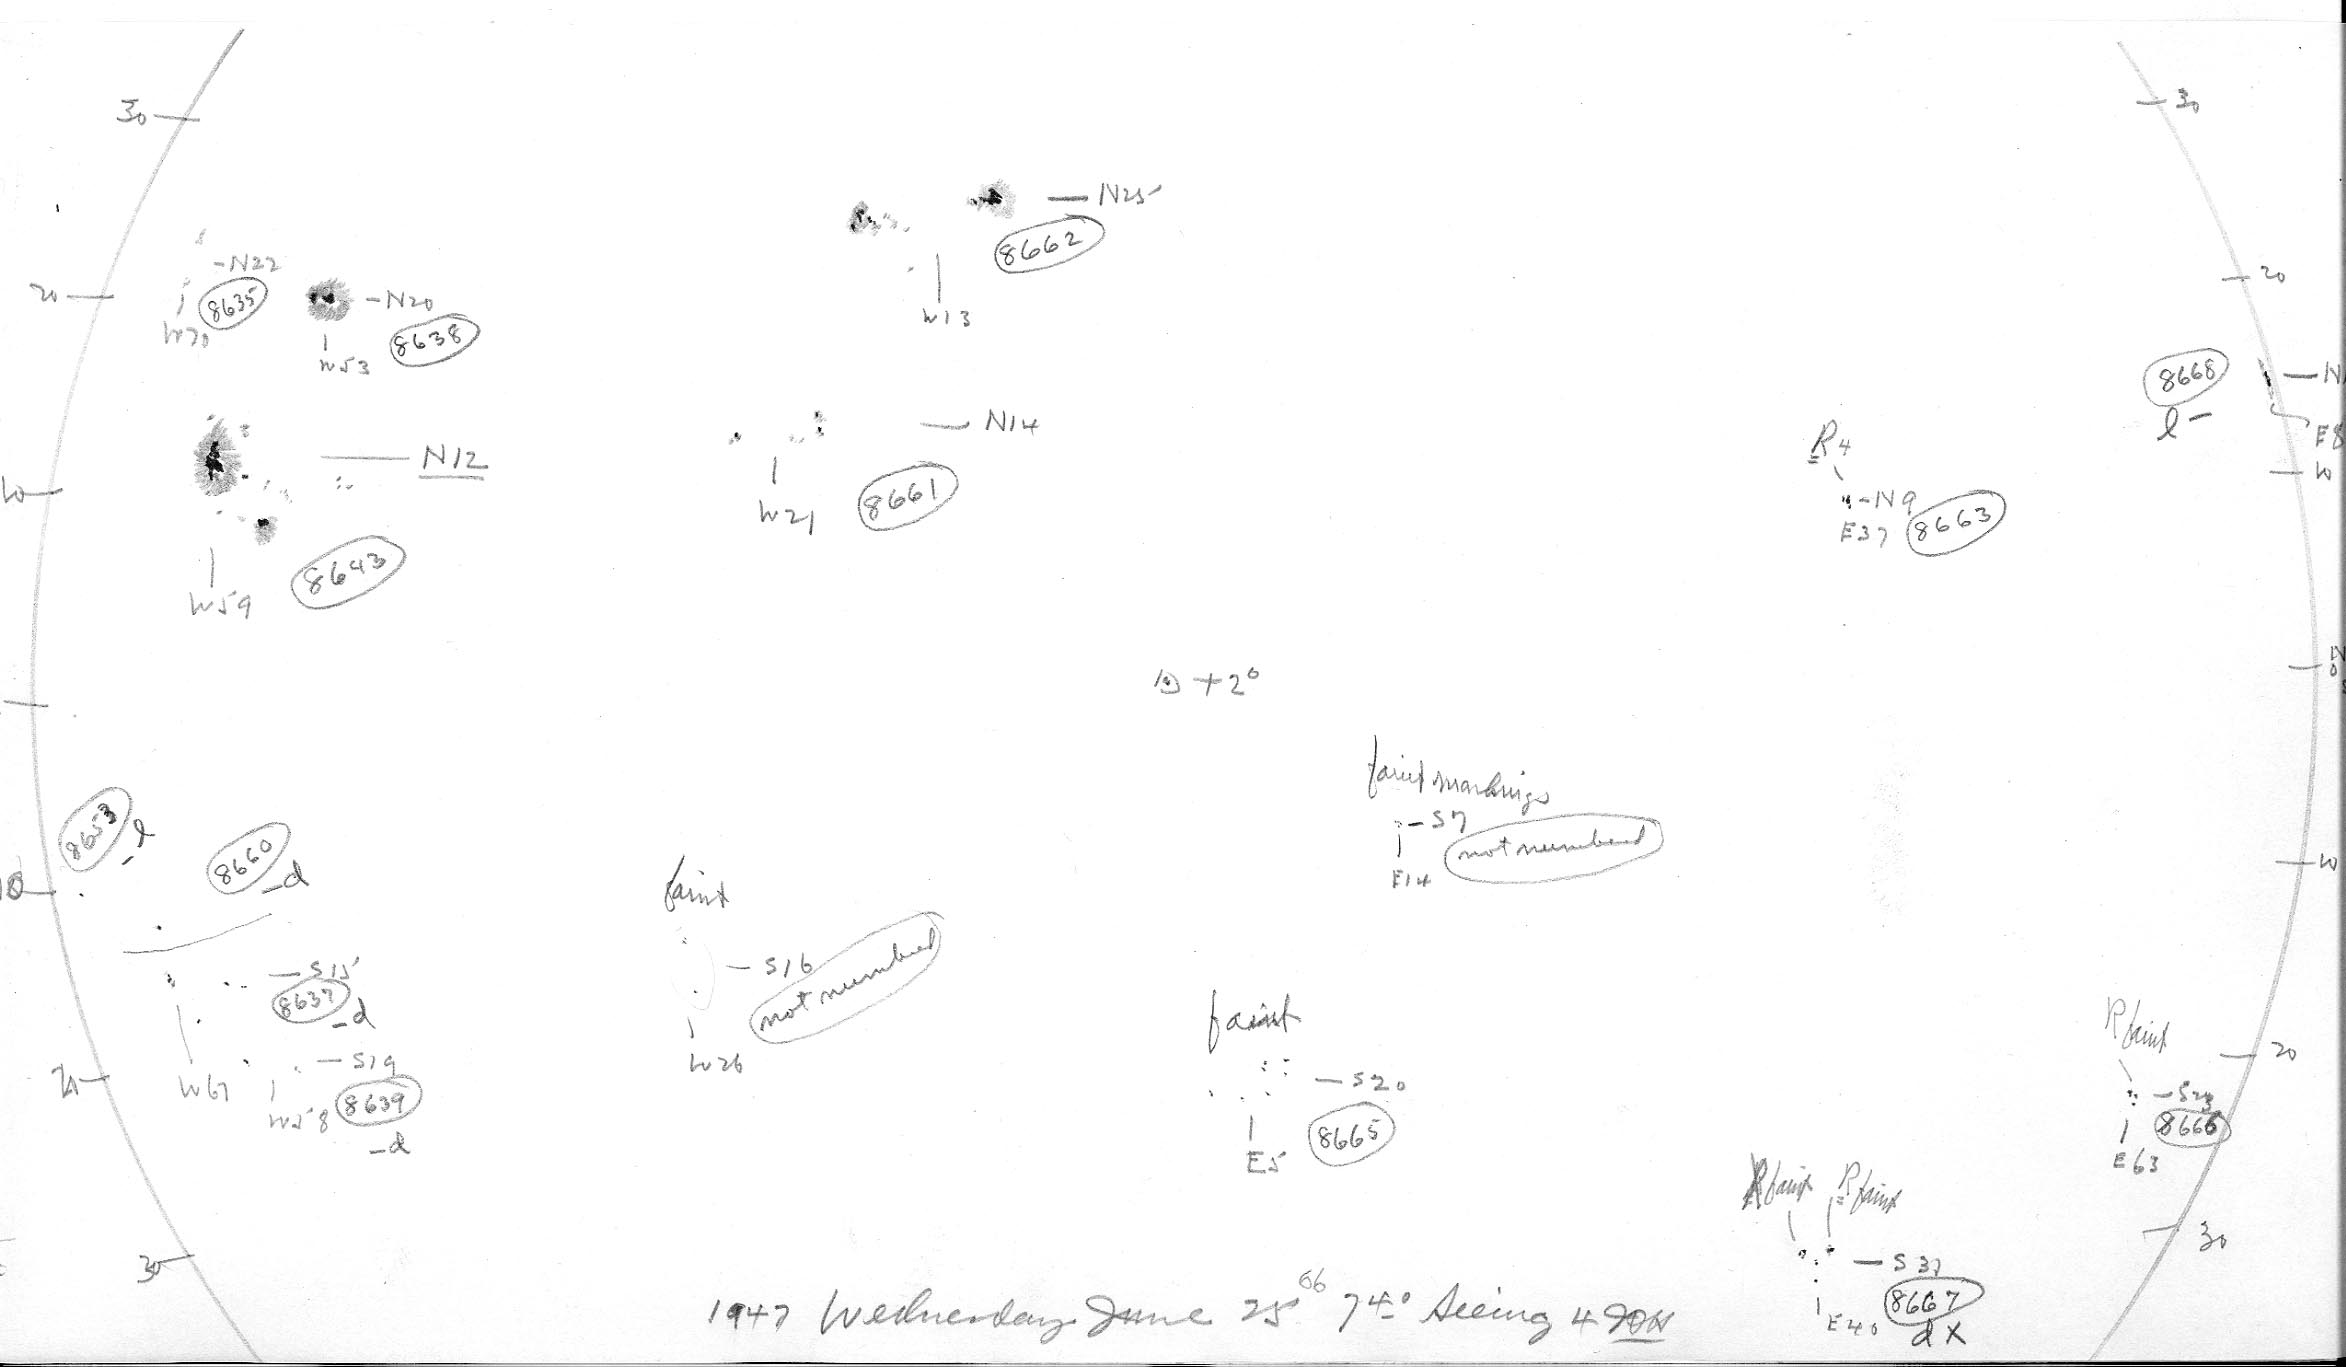 30
30
N25
8662
N22
20
8635
W70
N20
W53
8638
W13
20
8668
l
N
E8
N12
10
N14
W21
8661
R4
N9
E37
8663
10
8643
W59
+2°
N
0
S
faint markings
S7
not numbered
E14
8653
l
8660
d
faint
10
10
S15
8637
d
S16
not numbered
W26
faint
R faint
20
W67
S19
W58
8639
d
S20
E5
8665
20
S23
8666
E63
R faint
R faint
30
30
S37
8667
E40
d X
1947 Wednesday June 25 66 74° Seeing 4